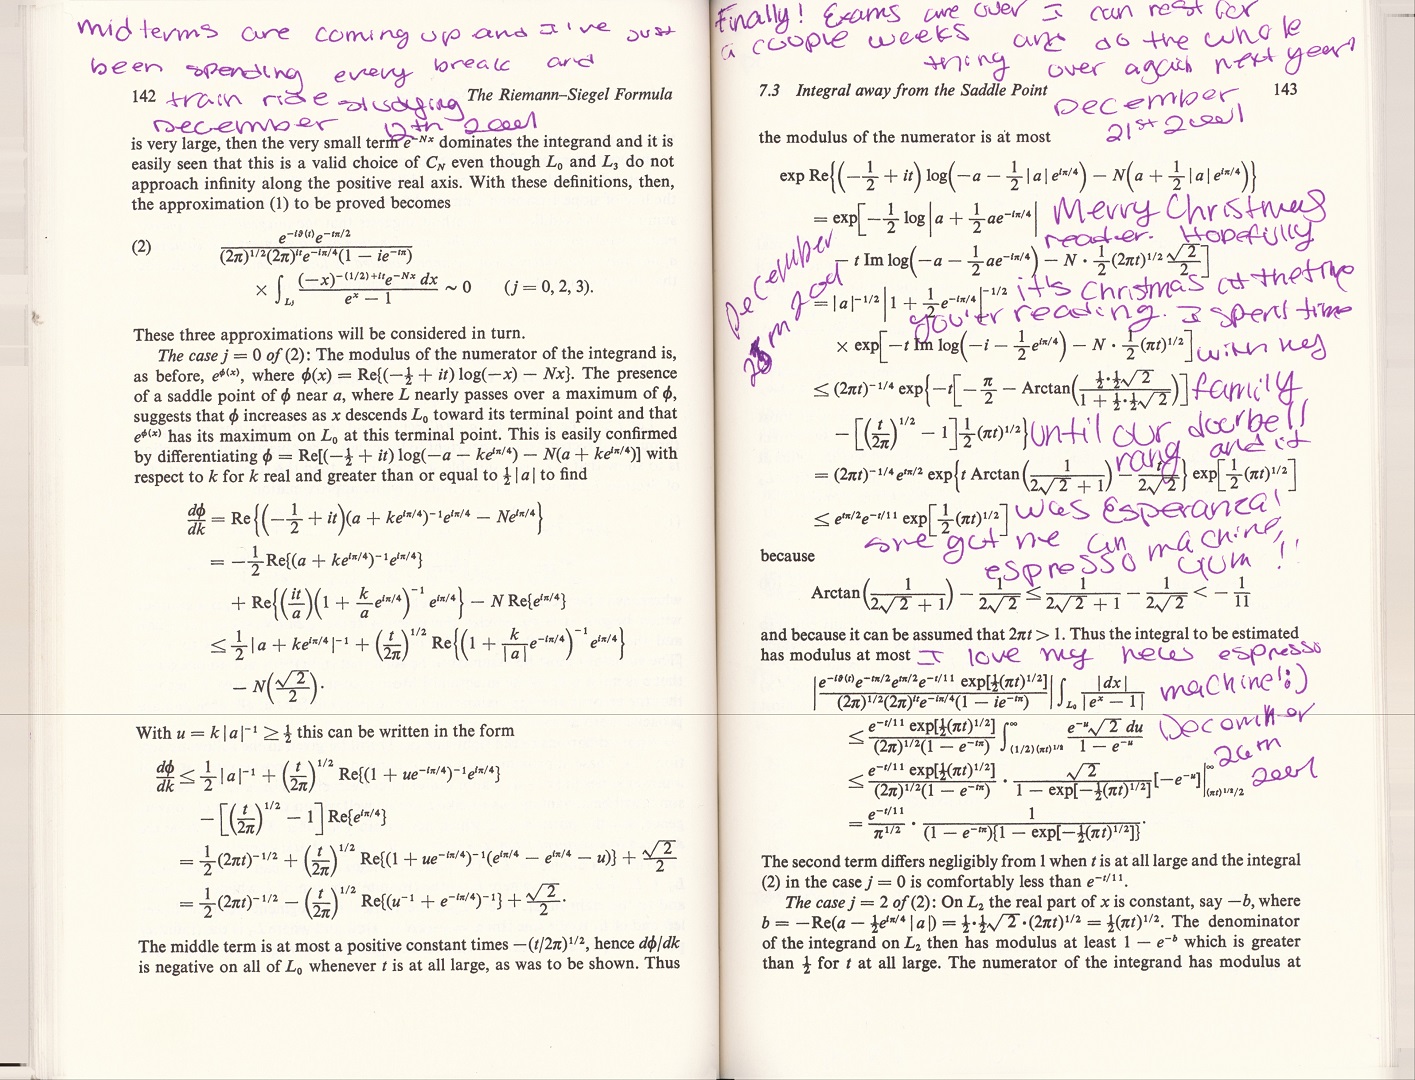 midterms are coming up and I've just
been spending every break and
train ride studying
December 12th 2001
142 The Riemann–Siegel Formula
is very large, then the very small term e^{-Nx} dominates the integrand and it is
easily seen that this is a valid choice of C_N even though L_0 and L_3 do not
approach infinity along the positive real axis. With these definitions, then,
the approximation (1) to be proved becomes
(2) \frac{e^{-i\vartheta(t)}e^{-t\pi/2}}{(2\pi)^{1/2}(2\pi)^{it}e^{-i\pi/4}(1 - ie^{-t\pi})}
× \int_{L_j} \frac{(-x)^{-(1/2)+it}e^{-Nx} dx}{e^x - 1} ~ 0 (j = 0, 2, 3).
These three approximations will be considered in turn.
The case j = 0 of (2): The modulus of the numerator of the integrand is,
as before, e^{ϕ(x)}, where ϕ(x) = Re{(-½ + it) log(-x) - Nx}. The presence
of a saddle point of ϕ near a, where L nearly passes over a maximum of ϕ,
suggests that ϕ increases as x descends L_0 toward its terminal point and that
e^{ϕ(x)} has its maximum on L_0 at this terminal point. This is easily confirmed
by differentiating ϕ = Re[(-½ + it) log(-a - ke^{iπ/4}) - N(a + ke^{iπ/4})] with
respect to k for k real and greater than or equal to ½|a| to find
\frac{dϕ}{dk} = Re{(-\frac{1}{2} + it)(a + ke^{iπ/4})^{-1}e^{iπ/4} - Ne^{iπ/4}}
= -\frac{1}{2}Re{(a + ke^{iπ/4})^{-1}e^{iπ/4}}
+ Re{(\frac{it}{a})(1 + \frac{k}{a}e^{iπ/4})^{-1} e^{iπ/4}} - N Re{e^{iπ/4}}
≤ \frac{1}{2}|a + ke^{iπ/4}|^{-1} + (\frac{t}{2π})^{1/2} Re{(1 + \frac{k}{|a|}e^{-iπ/4})^{-1} e^{iπ/4}}
- N(\frac{√2}{2}).
With u = k|a|^{-1} ≥ ½ this can be written in the form
\frac{dϕ}{dk} ≤ \frac{1}{2}|a|^{-1} + (\frac{t}{2π})^{1/2} Re{(1 + ue^{-iπ/4})^{-1}e^{iπ/4}}
- [(\frac{t}{2π})^{1/2} - 1] Re{e^{iπ/4}}
= \frac{1}{2}(2πt)^{-1/2} + (\frac{t}{2π})^{1/2} Re{(1 + ue^{-iπ/4})^{-1}(e^{iπ/4} - e^{iπ/4} - u)} + \frac{√2}{2}
= \frac{1}{2}(2πt)^{-1/2} - (\frac{t}{2π})^{1/2} Re{(u^{-1} + e^{-iπ/4})^{-1}} + \frac{√2}{2}.
The middle term is at most a positive constant times -(t/2π)^{1/2}, hence dϕ/dk
is negative on all of L_0 whenever t is at all large, as was to be shown. Thus
Finally! Exams are over I can rest for
a couple weeks and do the whole
thing over again next year
December
21st 2001
7.3 Integral away from the Saddle Point 143
the modulus of the numerator is at most
exp Re{(-\frac{1}{2} + it) log(-a - \frac{1}{2}|a|e^{iπ/4}) - N(a + \frac{1}{2}|a|e^{iπ/4})}
= exp[-\frac{1}{2} log|a + \frac{1}{2}ae^{-iπ/4}|
- t Im log(-a - \frac{1}{2}ae^{-iπ/4}) - N · \frac{1}{2}(2πt)^{1/2} \frac{√2}{2}]
= |a|^{-1/2} |1 + \frac{1}{2}e^{-iπ/4}|^{-1/2}
× exp[-t Im log(-i - \frac{1}{2}e^{iπ/4}) - N · \frac{1}{2}(πt)^{1/2}]
≤ (2πt)^{-1/4} exp{-t[-\frac{π}{2} - Arctan(\frac{½·½√2}{1 + ½·½√2})]
- [(\frac{t}{2π})^{1/2} - 1]\frac{1}{2}(πt)^{1/2}}
= (2πt)^{-1/4} e^{tπ/2} exp{t Arctan(\frac{1}{2√2 + 1}) - \frac{t}{2√2}} exp[\frac{1}{2}(πt)^{1/2}]
≤ e^{tπ/2}e^{-t/11} exp[\frac{1}{2}(πt)^{1/2}]
Merry Christmas
reader. Hopefully
it's Christmas at the time
you're reading. I spent time
with my
family
until our doorbell
rang and it
was Esperanza!
she got me an
espresso machine,
yum!!
December
25th 2001
because
Arctan(\frac{1}{2√2 + 1}) - \frac{1}{2√2} ≤ \frac{1}{2√2 + 1} - \frac{1}{2√2} < -\frac{1}{11}
and because it can be assumed that 2πt > 1. Thus the integral to be estimated
has modulus at most
I love my new espresso
machine! :)
December
26th
2001
|\frac{e^{-i\vartheta(t)}e^{-tπ/2}e^{tπ/2}e^{-t/11} exp[½(πt)^{1/2}]}{(2π)^{1/2}(2π)^{it}e^{-iπ/4}(1 - ie^{-tπ})}| \int_{L_0} \frac{|dx|}{|e^x - 1|}
≤ \frac{e^{-t/11} exp[½(πt)^{1/2}]}{(2π)^{1/2}(1 - e^{-tπ})} \int_{(1/2)(πt)^{1/2}}^{∞} \frac{e^{-u}√2 du}{1 - e^{-u}}
≤ \frac{e^{-t/11} exp[½(πt)^{1/2}]}{(2π)^{1/2}(1 - e^{-tπ})} · \frac{√2}{1 - exp[-½(πt)^{1/2}]}[-e^{-u}]|_{(πt)^{1/2}/2}^{∞}
= \frac{e^{-t/11}}{π^{1/2}} · \frac{1}{(1 - e^{-tπ}){1 - exp[-½(πt)^{1/2}]}}.
The second term differs negligibly from 1 when t is at all large and the integral
(2) in the case j = 0 is comfortably less than e^{-t/11}.
The case j = 2 of (2): On L_2 the real part of x is constant, say -b, where
b = -Re(a - ½e^{iπ/4}|a|) = ½·½√2·(2πt)^{1/2} = ½(πt)^{1/2}. The denominator
of the integrand on L_2 then has modulus at least 1 - e^{-b} which is greater
than ½ for t at all large. The numerator of the integrand has modulus at